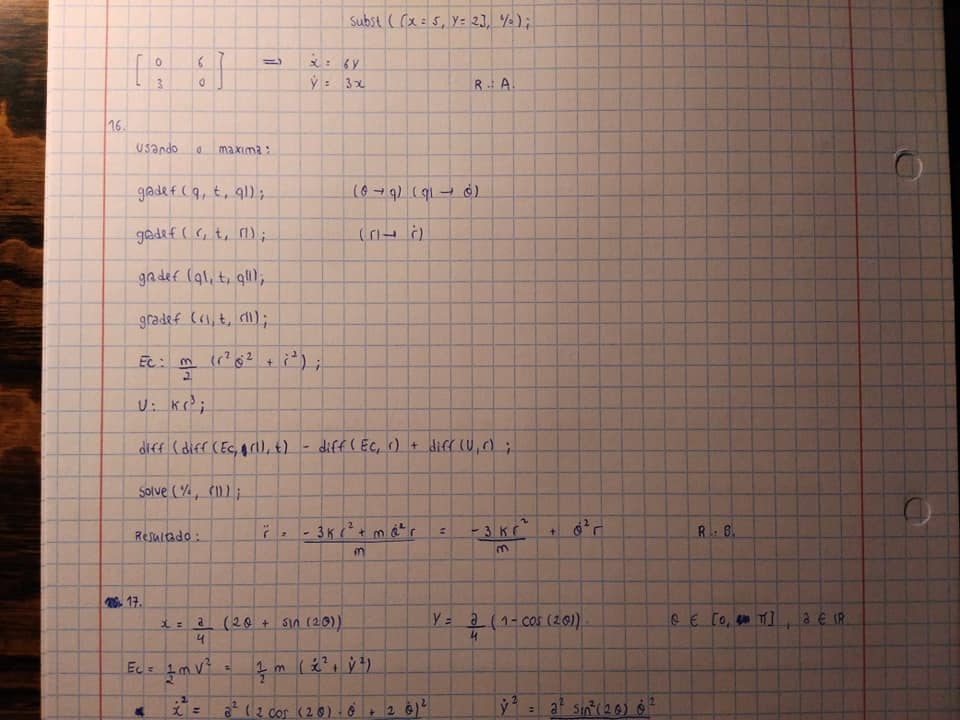 subst ([x = 5, y = 2], %);
[ 0 6 ; 3 0 ] => ẋ = 6y
ẏ = 3x R.: A.
16.
Usando o maxima:
gradef (q, t, q1); (θ → q) (q1 → θ̇)
gradef (r, t, r1); (r1 → ṙ)
gradef (q1, t, q11);
gradef (r1, t, r11);
Ec: m/2 (r² θ̇² + ṙ²);
U: kr³;
diff (diff (Ec, r1), t) - diff (Ec, r) + diff (U, r);
solve (%, r11);
Resultado: r̈ = (-3kr² + m θ̇² r)/m = -3kr²/m + θ̇² r R.: B.
17.
x = a/4 (2θ + sin (2θ)) y = a/4 (1 - cos (2θ)). θ ∈ [0, π], a ∈ ℝ
Ec = 1/2 m v² = 1/2 m (ẋ² + ẏ²)
ẋ² = a² (2 cos (2θ) · θ̇ + 2 θ̇)² ẏ² = a² sin² (2θ) θ̇²